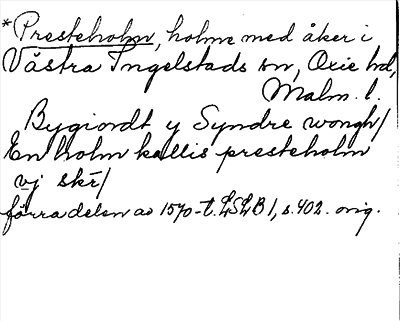 *Presteholm, holme med åker i
Västra Ingelstads sn, Oxie hd,
Malm. l.
Bygiordt y Syndre wongh/
En holm kallis presteholm
vj skr/
förra delen av 1570-t. LSLB 1, s. 402. orig.